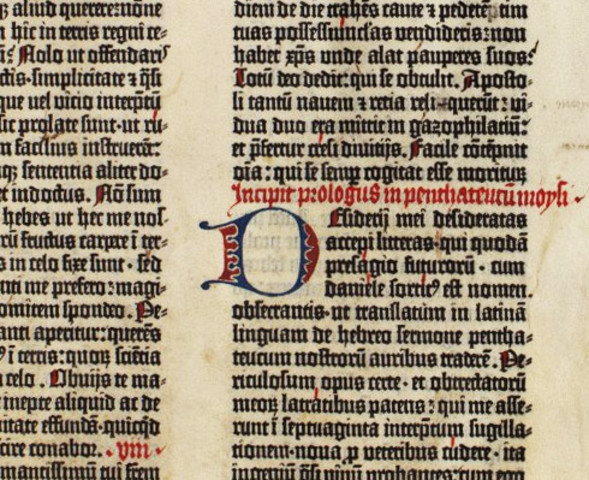 aliud querere: nõne
hic in terris regni ce-
Nolo ut offendaris
simplicitate ⁊ q̃si
que uel vicio interp̃tũ
sic prolate sunt·ut ru-
facilius instruerẽt:
sententia aliter do-
et indoctus. Nõ sum
hebes ut hec me nos-
fructus carpere ĩ ter-
in celo fixe sunt·sed
me prefero: magi-
omitem spondeo. Pe-
anti aperitur: querẽs
ĩ terris: quoꝝ sciẽtia
celo. Obuijs te ma-
inepte aliquid ac de
uitate effundã·quicq̃d
cire conabor. ·viii·
mantissimũ tui frẽm
diem de die trahẽs caute ⁊ pedetẽtim
tuas possessiũculas vendideris: non
habet xp̃s unde alat pauperes suos.
Totũ deo dedit: qui se obtulit. Aposto-
li tantũ nauem ⁊ retia reliquerũt: vi-
dua duo era mittit in gazophilaciũ:
et p̃fertur cresi diuitijs. Facile cõtẽpnit
oĩa: qui se semꝑ cogitat esse moriturꝰ
Incipit prologus in penthateucũ moysi
Desiderij mei desideratas
accepi litteras·qui quodã
presagio futurorũ·cum
daniele sortitꝰ est nomen.
obsecrantis·ut translatum in latinã
linguam de hebreo sermone pentha-
teucum nostrorũ auribus traderẽ. Pe-
riculosum opus certe·et obtrectatorũ
meoꝝ latratibus patens: qui me asse-
runt ĩ septuaginta interp̃tum sugilla-
tionem·noua ꝓ veteribus cudere·ita
ingeniũ q̃si vinũ probantes: cum ego